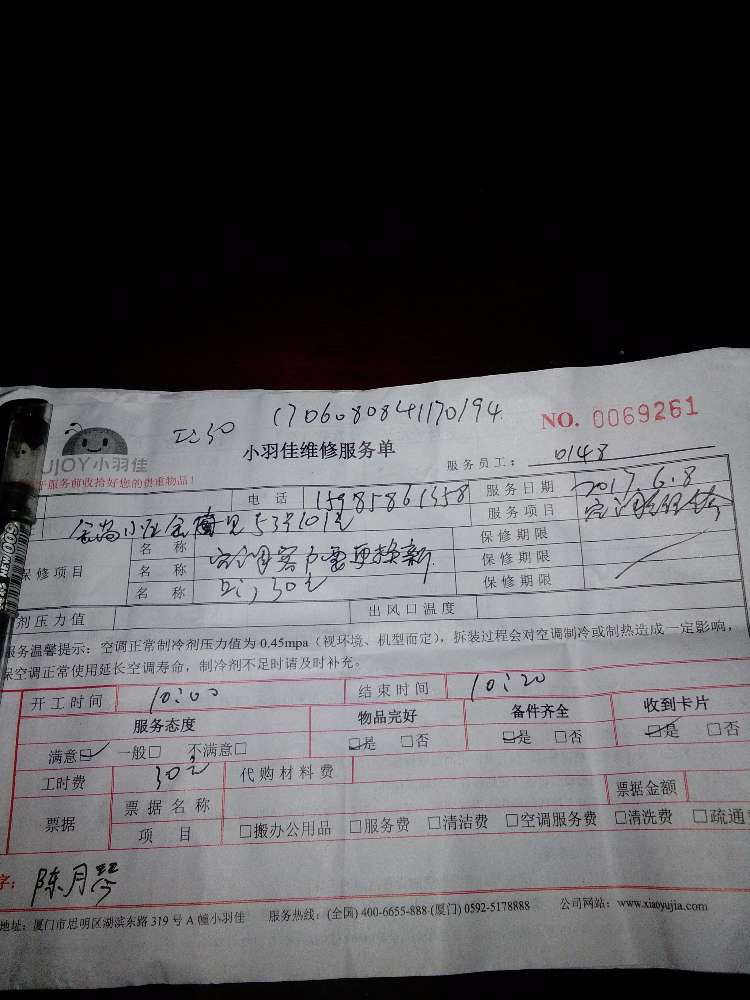 1706080841170194
NO. 0069261
UJOY小羽佳
小羽佳维修服务单
服务员工: 0148
服务前收拾好您的贵重物品!
电 话 15985861358 服务日期 2017.6.8
服务项目
名 称 保修期限
保修项目 名 称 空调客户要更换新 保修期限
名 称 30元 保修期限
剂压力值 出风口温度
服务温馨提示: 空调正常制冷剂压力值为 0.45mpa (视环境、机型而定), 拆装过程会对空调制冷或制热造成一定影响,
保空调正常使用延长空调寿命, 制冷剂不足时请及时补充。
开工时间 10:00 结束时间 10:20
服务态度 物品完好 备件齐全 收到卡片
满意☑ 一般□ 不满意□ ☑是 □否 ☑是 □否 ☑是 □否
工时费 30元 代购材料费
票据 票据名称 票据金额
项 目 □搬办公用品 □服务费 □清洁费 □空调服务费 □清洗费 □疏通
字: 陈月琴
地址: 厦门市思明区湖滨东路 319 号 A 幢小羽佳 服务热线: (全国) 400-6655-888 (厦门) 0592-5178888 公司网站: www.xiaoyujia.com